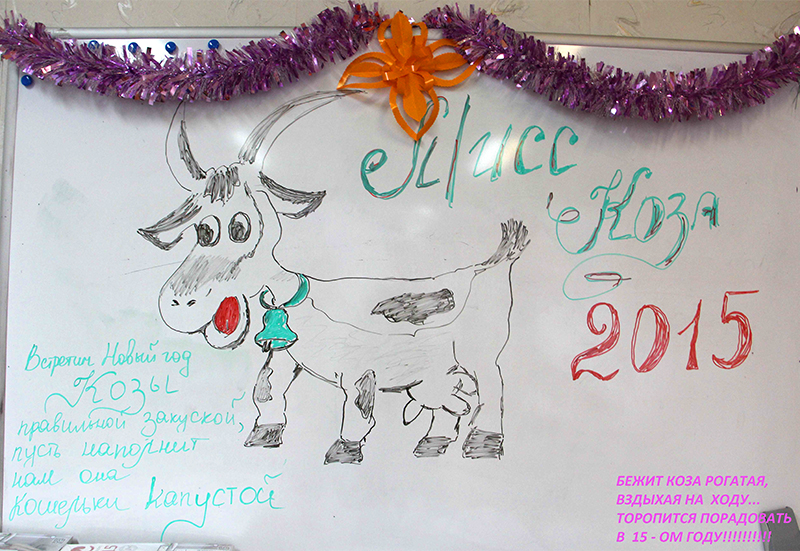 Мисс
Коза
2015
Встретим Новый год
Козы
правильной закуской,
пусть наполнит
нам она
кошельки капустой
БЕЖИТ КОЗА РОГАТАЯ,
ВЗДЫХАЯ НА ХОДУ...
ТОРОПИТСЯ ПОРАДОВАТЬ
В 15 - ОМ ГОДУ!!!!!!!!!!